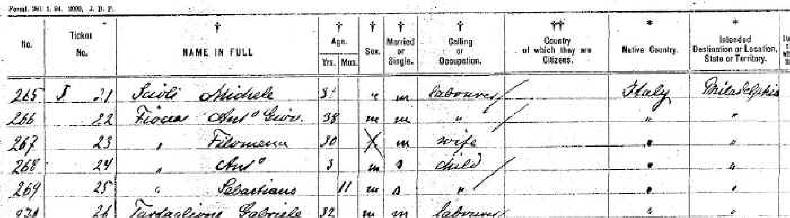 Form 261 1. 94. 2000, J. D. P.
No. Ticket No. NAME IN FULL Age. Yrs. Mos. Sex. Married or Single. Calling or Occupation. Country of which they are Citizens. Native Country. Intended Destination or Location, State or Territory.
265 21 Michele 3 " m labourer Italy Philadelphia
266 22 Antº Giov. 38 m m " " "
267 23 " Filomena 30 m wife " "
268 24 " Antº 3 m s child " "
269 25 " Sebastiano 11 m s " " "
270 26 Gabriele 32 m m labourer